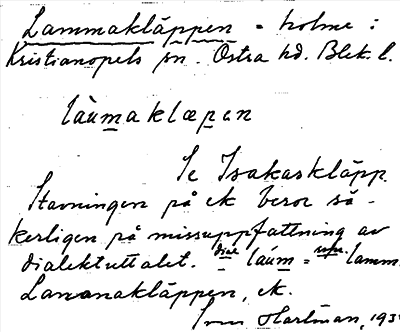 Lammakläppen = holme i
Kristianopels sn. Östra hd. Blek. l.
làumaklæpen
Se Isakaskläpp.
Stavningen på ek beror sä-
kerligen på missuppfattning av
dialektuttalet. dial láum = lamm.
Lammakläppen, ek.
Hartman, 193